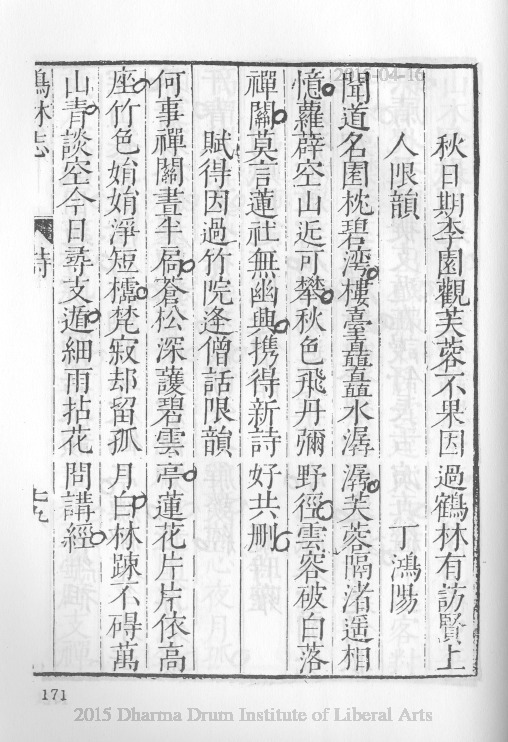 秋日期李園觀芙蓉不果因過鶴林有訪賢上
人限韻 丁鴻陽
聞道名園枕碧灣樓臺矗矗水潺潺芙蓉隔渚遥相
憶蘿薜空山近可攀秋色飛丹彌野徑雲容破白落
禪關莫言蓮社無幽興携得新詩好共刪
賦得因過竹院逢僧話限韻
何事禪關晝半扃蒼松深護碧雲亭蓮花片片依高
座竹色娟娟淨短櫺梵寂却留孤月白林踈不碍萬
山青談空今日尋支遁細雨拈花問講經
鶴林志 詩 七九
171
2015-04-16
2015 Dharma Drum Institute of Liberal Arts